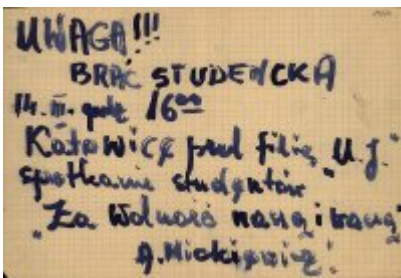 UWAGA!!!
BRAĆ STUDENCKA
14. III. godz 16⁰⁰
Katowice pred filię "U.J."
spotkanie studentów
"Za Wolność naszą i waszą"
A. Mickiewicz.